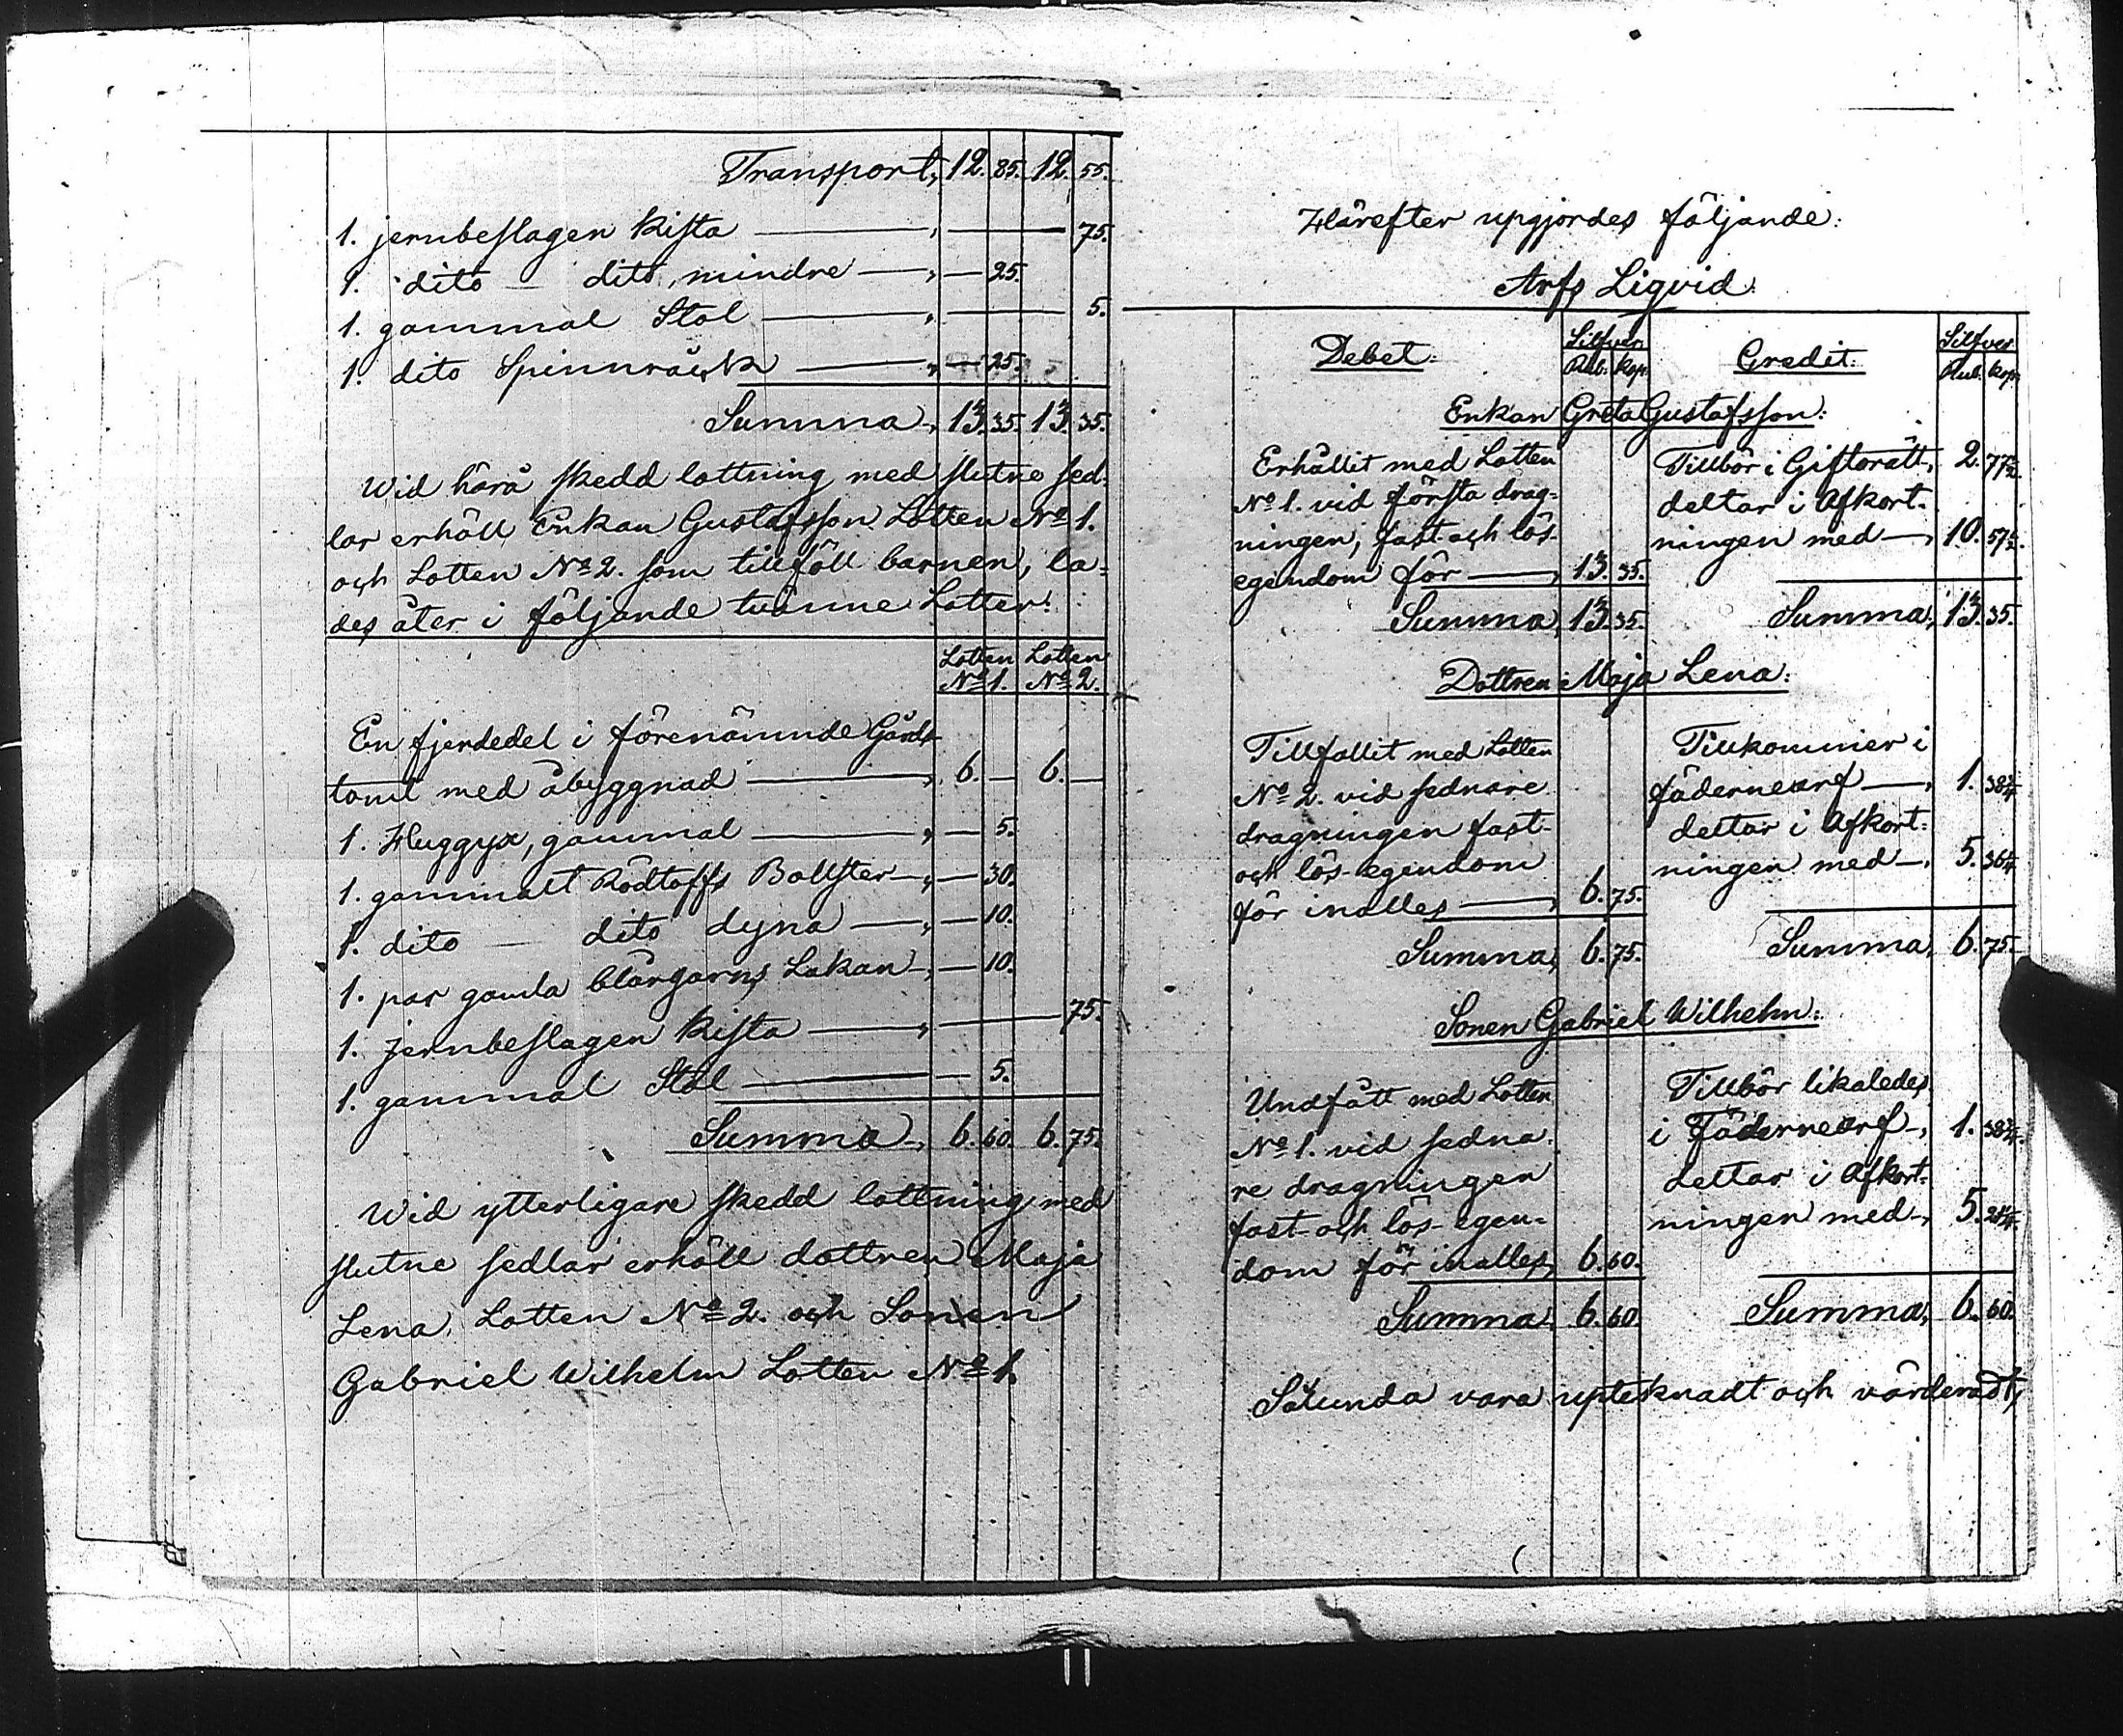 Transport, 12. 85. 12. 55.
1. jernbeslagen Kista — 75.
1. dito — dito, mindre — 25.
1. gammal Stol — 5.
1. dito Spinnråck — 25.
Summa, 13. 35. 13. 35.
Wid härå skedd lottning med slutne sed-
lar erhöll Enkan Gustafsson Lotten No 1.
och Lotten No 2. som tillföll barnen, la-
des åter i följande tvänne Lotter:
Lotten Lotten
No 1. No 2.
En fjerdedel i förenämnde Gårds
tomt med åbyggnad — 6. — 6. —
1. Huggyx, gammal — 5.
1. gammalt Rödtoffs Bollster — 30.
1. dito — dito dyna — 10.
1. par gamla blårgarns Lakan — 10.
1. jernbeslagen Kista — 75.
1. gammal Stol — 5.
Summa, 6. 60. 6. 75.
Wid ytterligare skedd lottning med
slutne sedlar erhöll dottren Maja
Lena, Lotten No 2. och Sonen
Gabriel Wilhelm Lotten No 1.
Härefter upgjordes följande:
Arfs Liqvid.
Debet: Silfver Rub. Kop. Credit: Silfver Rub. Kop.
Enkan Greta Gustafsson:
Erhållit med Lotten
No 1. vid första drag-
ningen, fast och lös-
egendom för — 13. 35.
Summa, 13. 35.
Tillbör i Giftorätt, 2. 77½.
deltar i Afkort-
ningen med — 10. 57½.
Summa, 13. 35.
Dottren Maja Lena:
Tillfallit med Lotten
No 2. vid sednare
dragningen fast-
och lös-egendom
för inalles — 6. 75.
Summa, 6. 75.
Tillkommer i
fädernearf — 1. 38¾
deltar i Afkort-
ningen med — 5. 36¼
Summa, 6. 75.
Sonen Gabriel Wilhelm:
Undfått med Lotten
No 1. vid sedna-
re dragningen
fast- och lös-egen-
dom för inalles, 6. 60.
Summa, 6. 60.
Tillbör likaledes
i Fädernearf —, 1. 38¾.
deltar i Afkort-
ningen med —, 5. 21¼.
Summa, 6. 60.
Sålunda vara uptecknadt och värderadt,